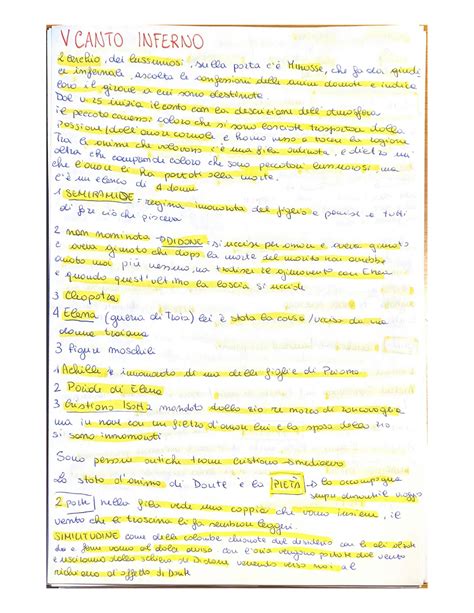 V CANTO INFERNO
2 cerchio, dei lussuriosi, sulla porta c'è Minosse, che fa da giudi
ce infernale, ascolta le confessioni delle anime dannate e indica
loro il girone a cui sono destinate.
Dal v. 25 inizia il canto con la descrizione dell'atmosfera
il peccato coloro che si sono lasciati trasportare dalla
passione/dall'amore carnale e hanno messo a tacere la ragione
Tra le anime che c'è una fila ordinata, e dietro un
altra che comprende coloro che sono peccatori lussuriosi, ma
che l'amore li ha portati alla morte.
c'è un elenco di 4 donne
1 SEMIRAMIDE = regina innamorata del figlio e permise a tutti
di fare ciò che piaceva
2 non nominata → DIDONE = si uccise per amore e aveva giurato
che dopo la morte del marito non avrebbe
amato mai più nessuno, ma tradisce il giuramento con Enea
e quando quest'ultimo la lascia si uccide
3 Cleopatra
4 Elena (guerra di Troia) lei è stata la causa
donna troiana
3 figure maschili
1 Achille è innamorato di una delle figlie di Priamo
2 Paride di Elena
3 Tristano Isotta mandato dallo zio re marco di cornovaglia
ma in nave con un filtro d'amore lui e la sposa dello zio
si sono innamorati
Sono personaggi antichi tranne tristano → medioevo
Lo stato d'animo di Dante è la PIETÀ → lo accompagna
durante il viaggio
2 parte nella fila vede una coppia che vanno insieme, il
vento che li trascina li fa sembrare leggeri.
SIMILITUDINE come delle colombe chiamate dal desiderio con le ali
e ferme vanno al dolce vengono portate dal vento
e usciranno dalla schiera di Didone venendo verso noi al
richiamo di Dante